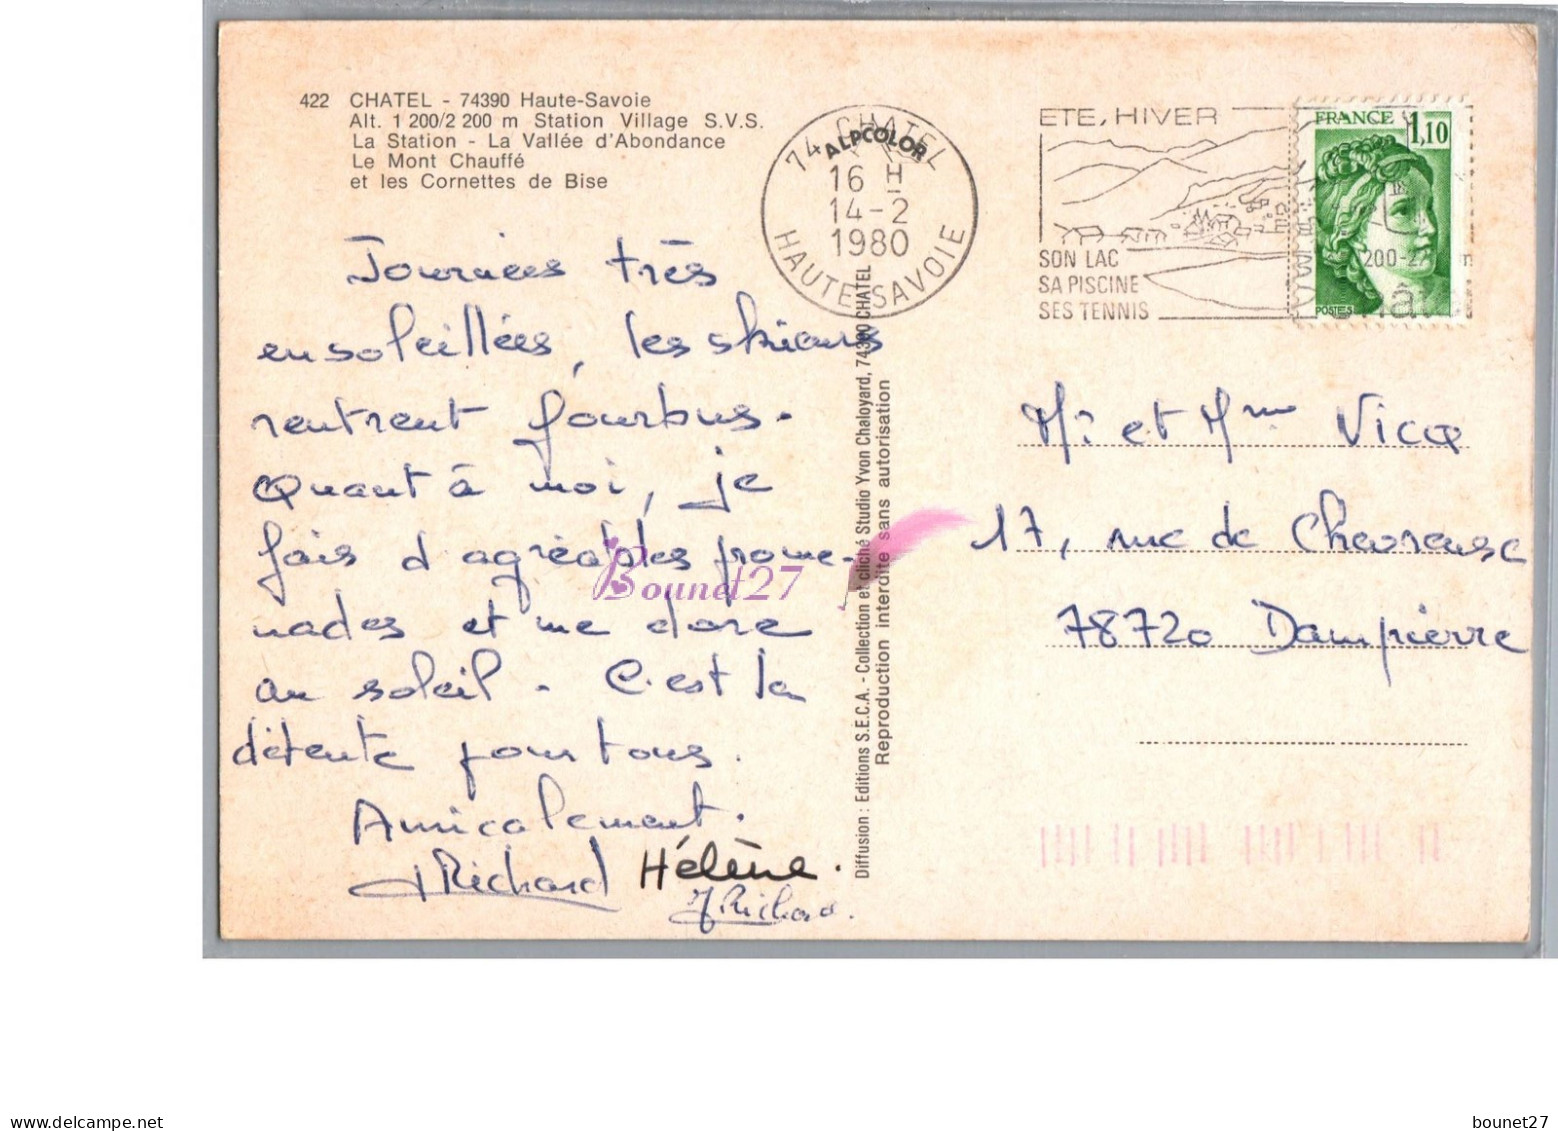 422 CHATEL - 74390 Haute-Savoie
Alt. 1 200/2 200 m Station Village S.V.S.
La Station - La Vallée d'Abondance
Le Mont Chauffé
et les Cornettes de Bise
Journées très
ensoleillées, les skieurs
rentrent fourbus.
Quant à moi, je
fais d'agréables prome-
nades et me dore
au soleil. C'est la
détente pour tous.
Amicalement.
Richard Hélène.
Richard.
Bounet27
Diffusion : Editions S.E.C.A. - Collection et cliché Studio Yvon Chaloyard, 74390 CHATEL
Reproduction interdite sans autorisation
ALPCOLOR
74 CHATEL
16 H
14-2
1980
HAUTE-SAVOIE
ETE, HIVER
SON LAC
SA PISCINE
SES TENNIS
FRANCE 1,10
POSTES
Mr et Mme Vicq
17, rue de Chevreuse
78720 Dampierre
delcampe.net
bounet27